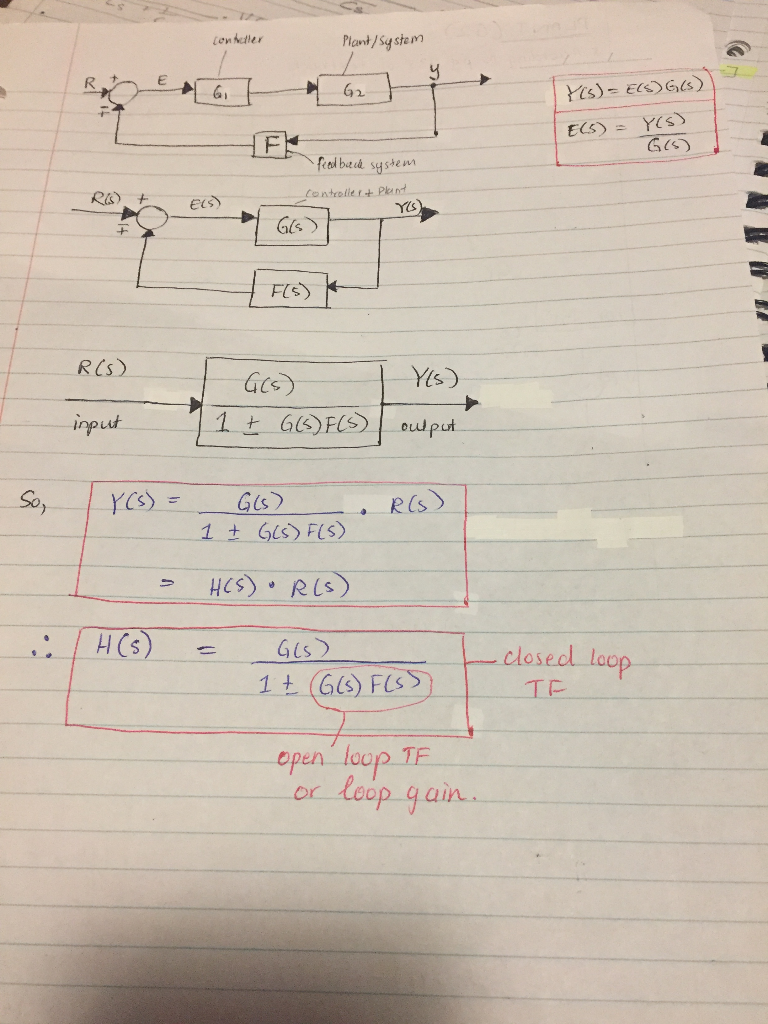 Controller
Plant/System
R + E G₁ G₂ y
∓
F
feedback system
Y(s) = E(s) G(s)
E(s) = Y(s) / G(s)
Controller + Plant
R(s) + E(s) G(s) Y(s)
∓
F(s)
R(s) G(s) Y(s)
input 1 ± G(s) F(s) output
So, Y(s) = G(s) / 1 ± G(s) F(s) . R(s)
= H(s) • R(s)
∴ H(s) = G(s) / 1 ± G(s) F(s)
closed loop
TF
open loop TF
or loop gain.